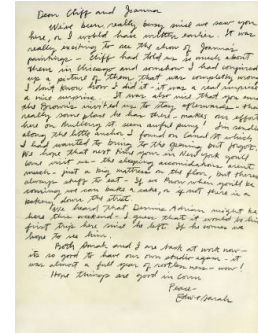 Dear Cliff and Joanna
We've been really busy since we saw you
here, or I would have written earlier. It was
really exciting to see the show of Joanna's
paintings - Cliff had told us so much about
them in Chicago and somehow I had conjured
up a picture of them that was completely wrong
I don't know how I did it - it was a real surprise
a nice surprise. It was also nice that you and
the Browns invited us to stay afterwards - that
really some place he has there - makes our efforts
here on building it seem awful puny! I'm sending
along the little anchor I found on Canal St which
I had wanted to bring to the opening but forgot.
We hope that next time you're in New York you'll
come visit us - the sleeping accomodations aren't
much - just a big mattress on the floor, but there's
always stuff to eat - If we know when you'll be
coming we can bake a cake, or if not there is a
bakery down the street.
We heard that Dennis Adrian might be
here this weekend - I guess that it would be his
first trip here since he left. If he comes we
hope to see him.
Both Sarah and I are back at work now -
its so good to have our own studio again - it
was almost a full year of rootlessness - wow!
Hope things are good in Conn
Peace -
Edw & Sarah